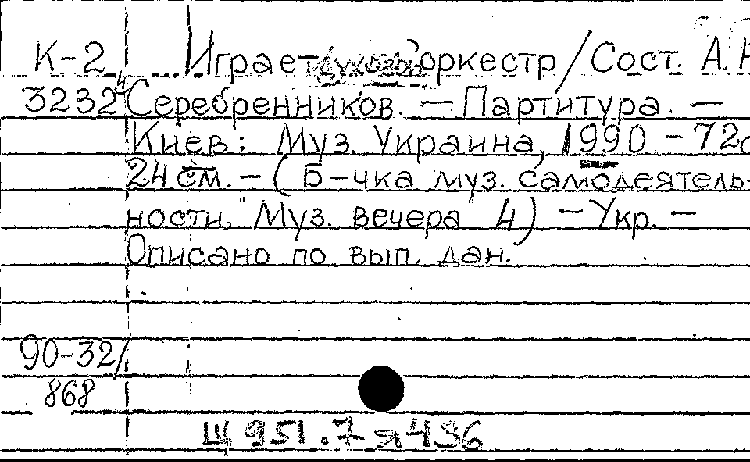 К-2 Играет духовой оркестр / Сост. А.
3232 Серебренников. — Партитура. —
Киев: Муз. Украина, 1990 - 72с
24 см. — ( Б-чка муз. самодеятель-
ности, "Муз. вечера" 4) — Укр. —
Описано по вып. дан.
90-32/
868
Щ 951.7 я 436